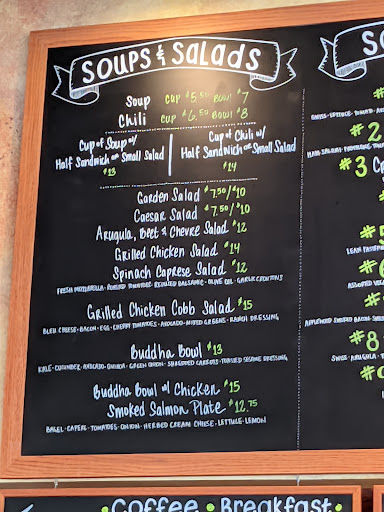 SOUPS & SALADS
Soup CUP $5.50 BOWL $7
Chili CUP $6.50 BOWL $8
Cup of Soup w/
Half Sandwich or Small Salad
$13
Cup of Chili w/
Half Sandwich or Small Salad
$14
Garden Salad $7.50/$10
Caesar Salad $7.50/$10
Arugula, Beet & Chevre Salad $12
Grilled Chicken Salad $14
Spinach Caprese Salad $12
FRESH MOZZARELLA • ROASTED TOMATOES • REDUCED BALSAMIC • OLIVE OIL • GARLIC CROUTONS
Grilled Chicken Cobb Salad $15
BLEU CHEESE • BACON • EGG • CHERRY TOMATOES • AVOCADO • MIXED GREENS • RANCH DRESSING
Buddha Bowl $13
KALE • CUCUMBER • AVOCADO • QUINOA • GREEN ONION • SHREDDED CARROTS • TOASTED SESAME DRESSING
Buddha Bowl w/ Chicken $15
Smoked Salmon Plate $12.75
BAGEL • CAPERS • TOMATOES • ONION • HERBED CREAM CHEESE • LETTUCE • LEMON
#2
#3
#8
•Coffee •Breakfast•